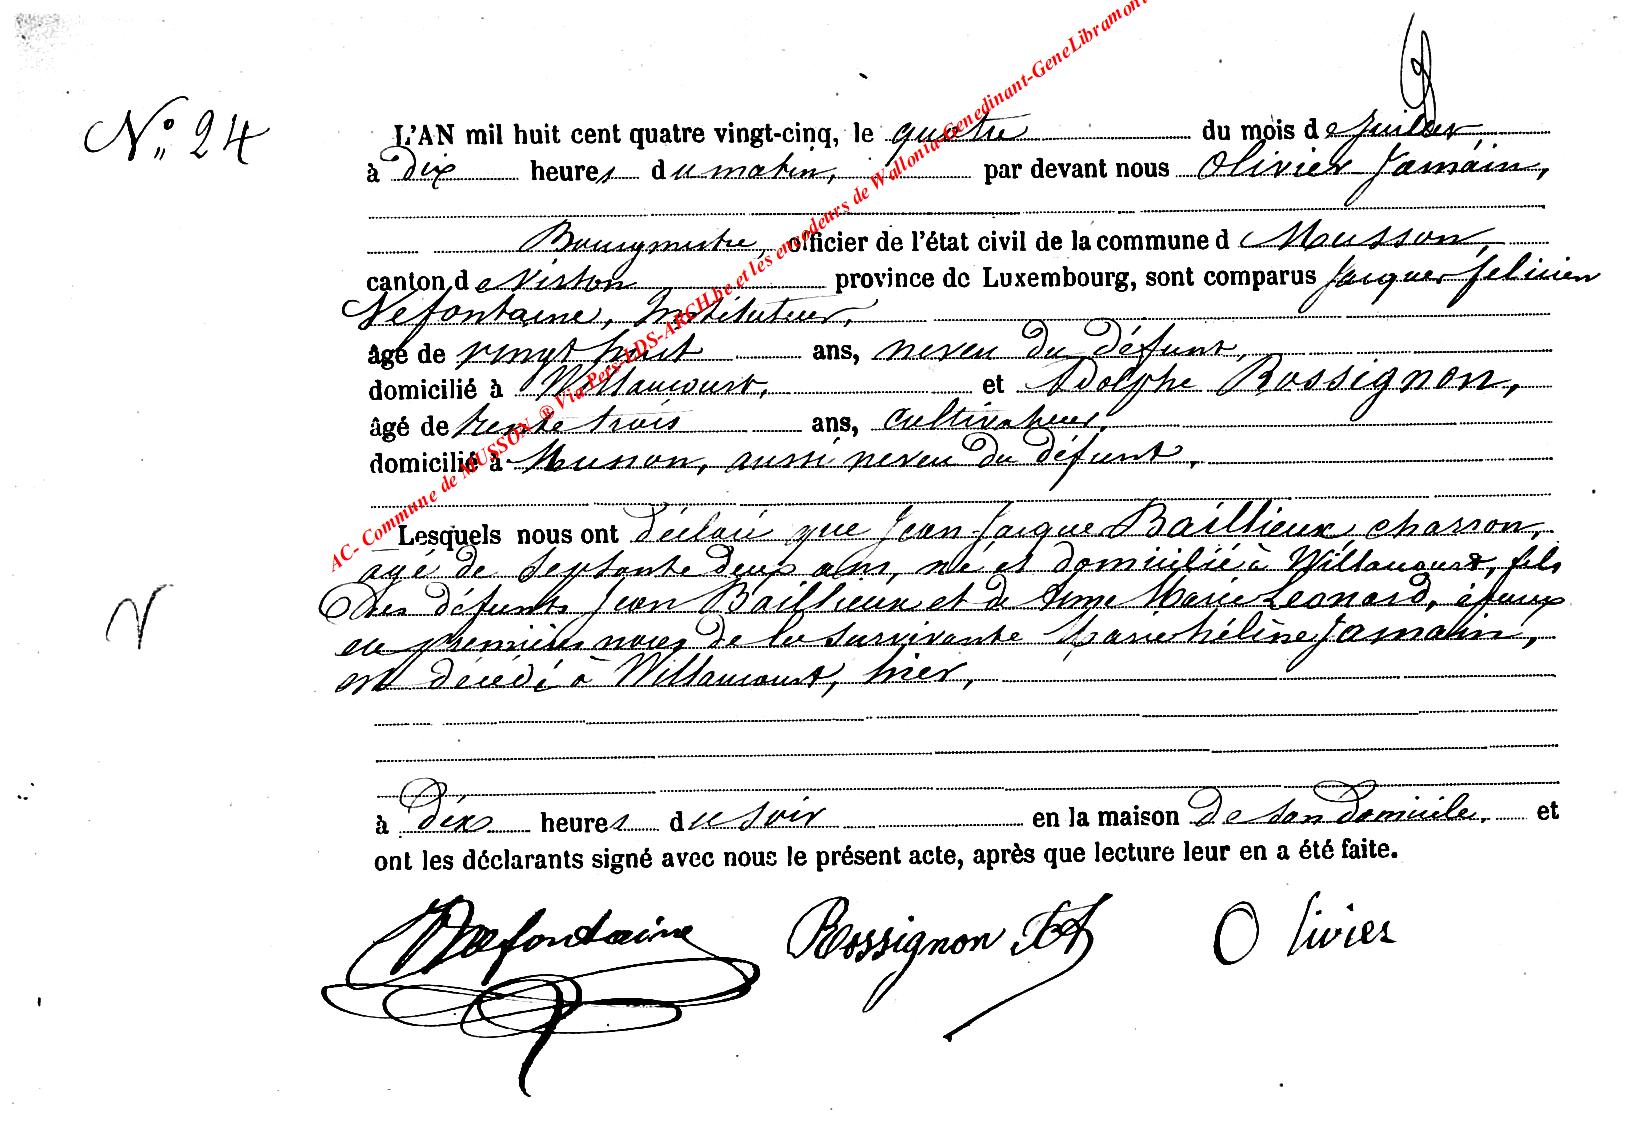 N° 24
L'AN mil huit cent quatre vingt-cinq, le quatre du mois de Juillet
à dix heures du matin, par devant nous Olivier Jamain,
Bourgmestre, officier de l'état civil de la commune de Musson,
canton de Virton province de Luxembourg, sont comparus Jacques felicien
Nefontaine, Instituteur,
âgé de vingt huit ans, neveu du défunt,
domicilié à Willancourt, et Adolphe Rossignon,
âgé de trente trois ans, cultivateur,
domicilié à Musson, aussi neveu du défunt,
Lesquels nous ont déclaré que Jean Jacque Baillieux, charron,
agé de septante deux ans, né et domicilié à Willancourt, fils
des défunts Jean Baillieux et de Marie Leonard, époux
en premières noces de la survivante Marie hélène Jamain,
est décédé à Willancourt, hier,
à dix heures du soir en la maison de son domicile, et
ont les déclarants signé avec nous le présent acte, après que lecture leur en a été faite.
Nefontaine Rossignon Olivier
AC- Commune de MUSSON ® Via Pers-LDS-ARCH.be et les encodeurs de Wallonia-Genedinant-GeneLibramon